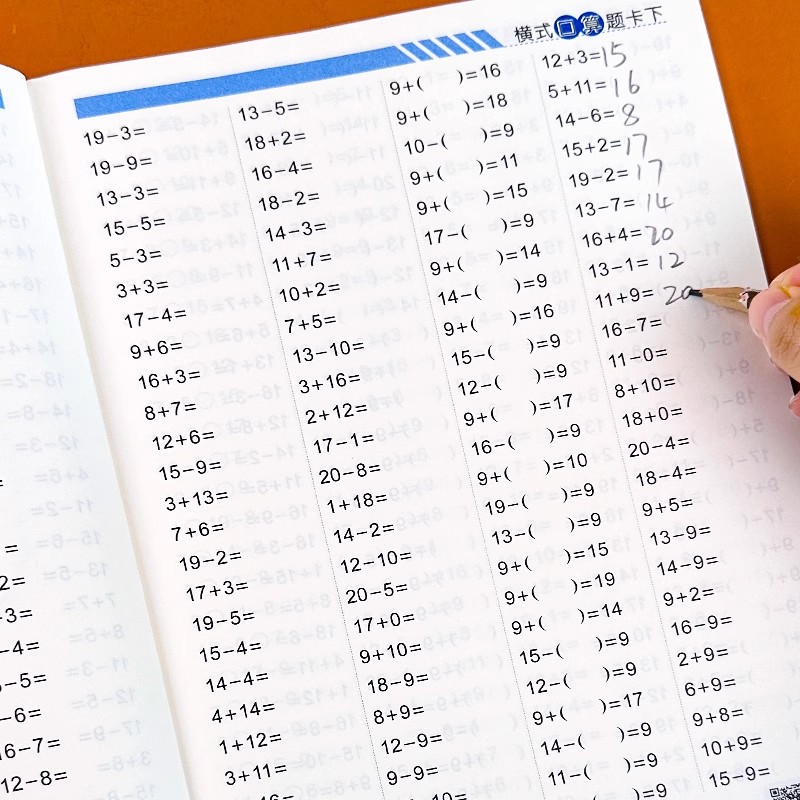 横式口算题卡下
=
2=
-3=
-4=
-5=
-6=
16-7=
12-8=
19-3=
19-9=
13-3=
15-5=
5-3=
3+3=
17-4=
9+6=
16+3=
8+7=
12+6=
15-9=
3+13=
7+6=
19-2=
17+3=
19-5=
15-4=
14-4=
4+14=
1+12=
3+11=
13-5=
18+2=
16-4=
18-2=
14-3=
11+7=
10+2=
7+5=
13-10=
3+16=
2+12=
17-1=
20-8=
1+18=
14-2=
12-10=
20-5=
17+0=
9+10=
18-9=
8+9=
12-9=
9-9=
9+( )=16
9+( )=18
10-( )=9
9+( )=11
9+( )=15
17-( )=9
9+( )=14
14-( )=9
9+( )=16
15-( )=9
12-( )=9
9+( )=17
16-( )=9
9+( )=10
19-( )=9
13-( )=9
9+( )=15
9+( )=19
9+( )=14
15-( )=9
12-( )=9
9+( )=17
14-( )=9
11-( )=9
)=9
12+3=15
5+11=16
14-6=8
15+2=17
19-2=17
13-7=14
16+4=20
13-1=12
11+9=20
16-7=
11-0=
8+10=
18+0=
20-4=
18-4=
9+5=
13-9=
14-9=
9+2=
16-9=
2+9=
6+9=
9+8=
10+9=
15-9=